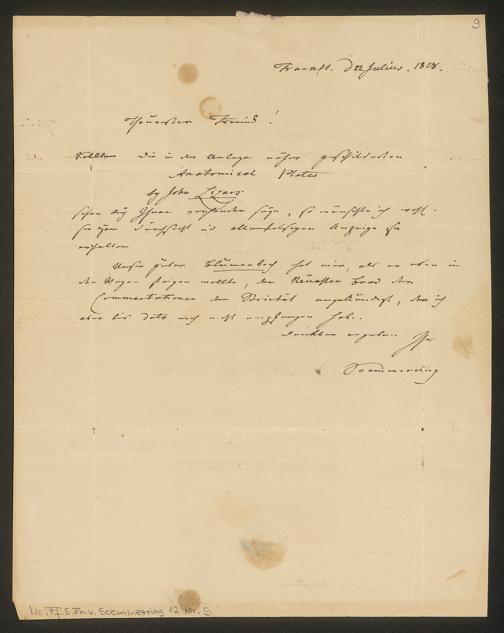 9
Frankft. d 22 Julius. 1828.
Theuerster Freund!
Sollten die in der Anlage näher geschilderten
Anatomical Plates
by John Lizars
schon bey Ihnen vorhanden seyn, so wünschte ich wohl
sie zur Durchsicht und
erhalten
Unser guter Blumenbach hat mir, als er eben in
den Wagen steigen wollte, den Neuesten Band der
Commentationen der Societät angekündigt, den ich
aber bis dato noch nicht empfangen habe.
Ihr
Soemmerring
Ms. Ff. S. Th. v. Soemmerring 12 Nr. 5